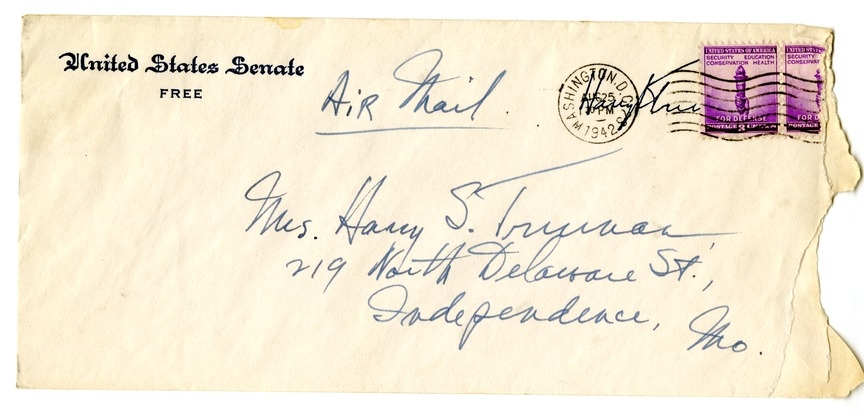 United States Senate
FREE
Air Mail.
WASHINGTON, D.C.
AUG 25
PM
1942
Harry
UNITED STATES OF AMERICA
SECURITY EDUCATION
CONSERVATION HEALTH
FOR DEFENSE
POSTAGE 3 CENTS
UNITED STATES
SECURITY
CONSERVAT
FOR D
POSTAGE
Mrs. Harry S. Truman
219 North Delaware St.,
Independence, Mo.